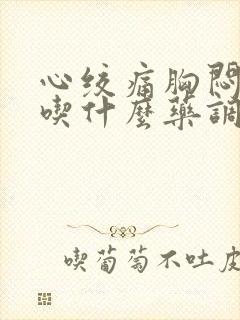 心绞痛胸悶
喫什麽藥調
喫葡萄不吐皮